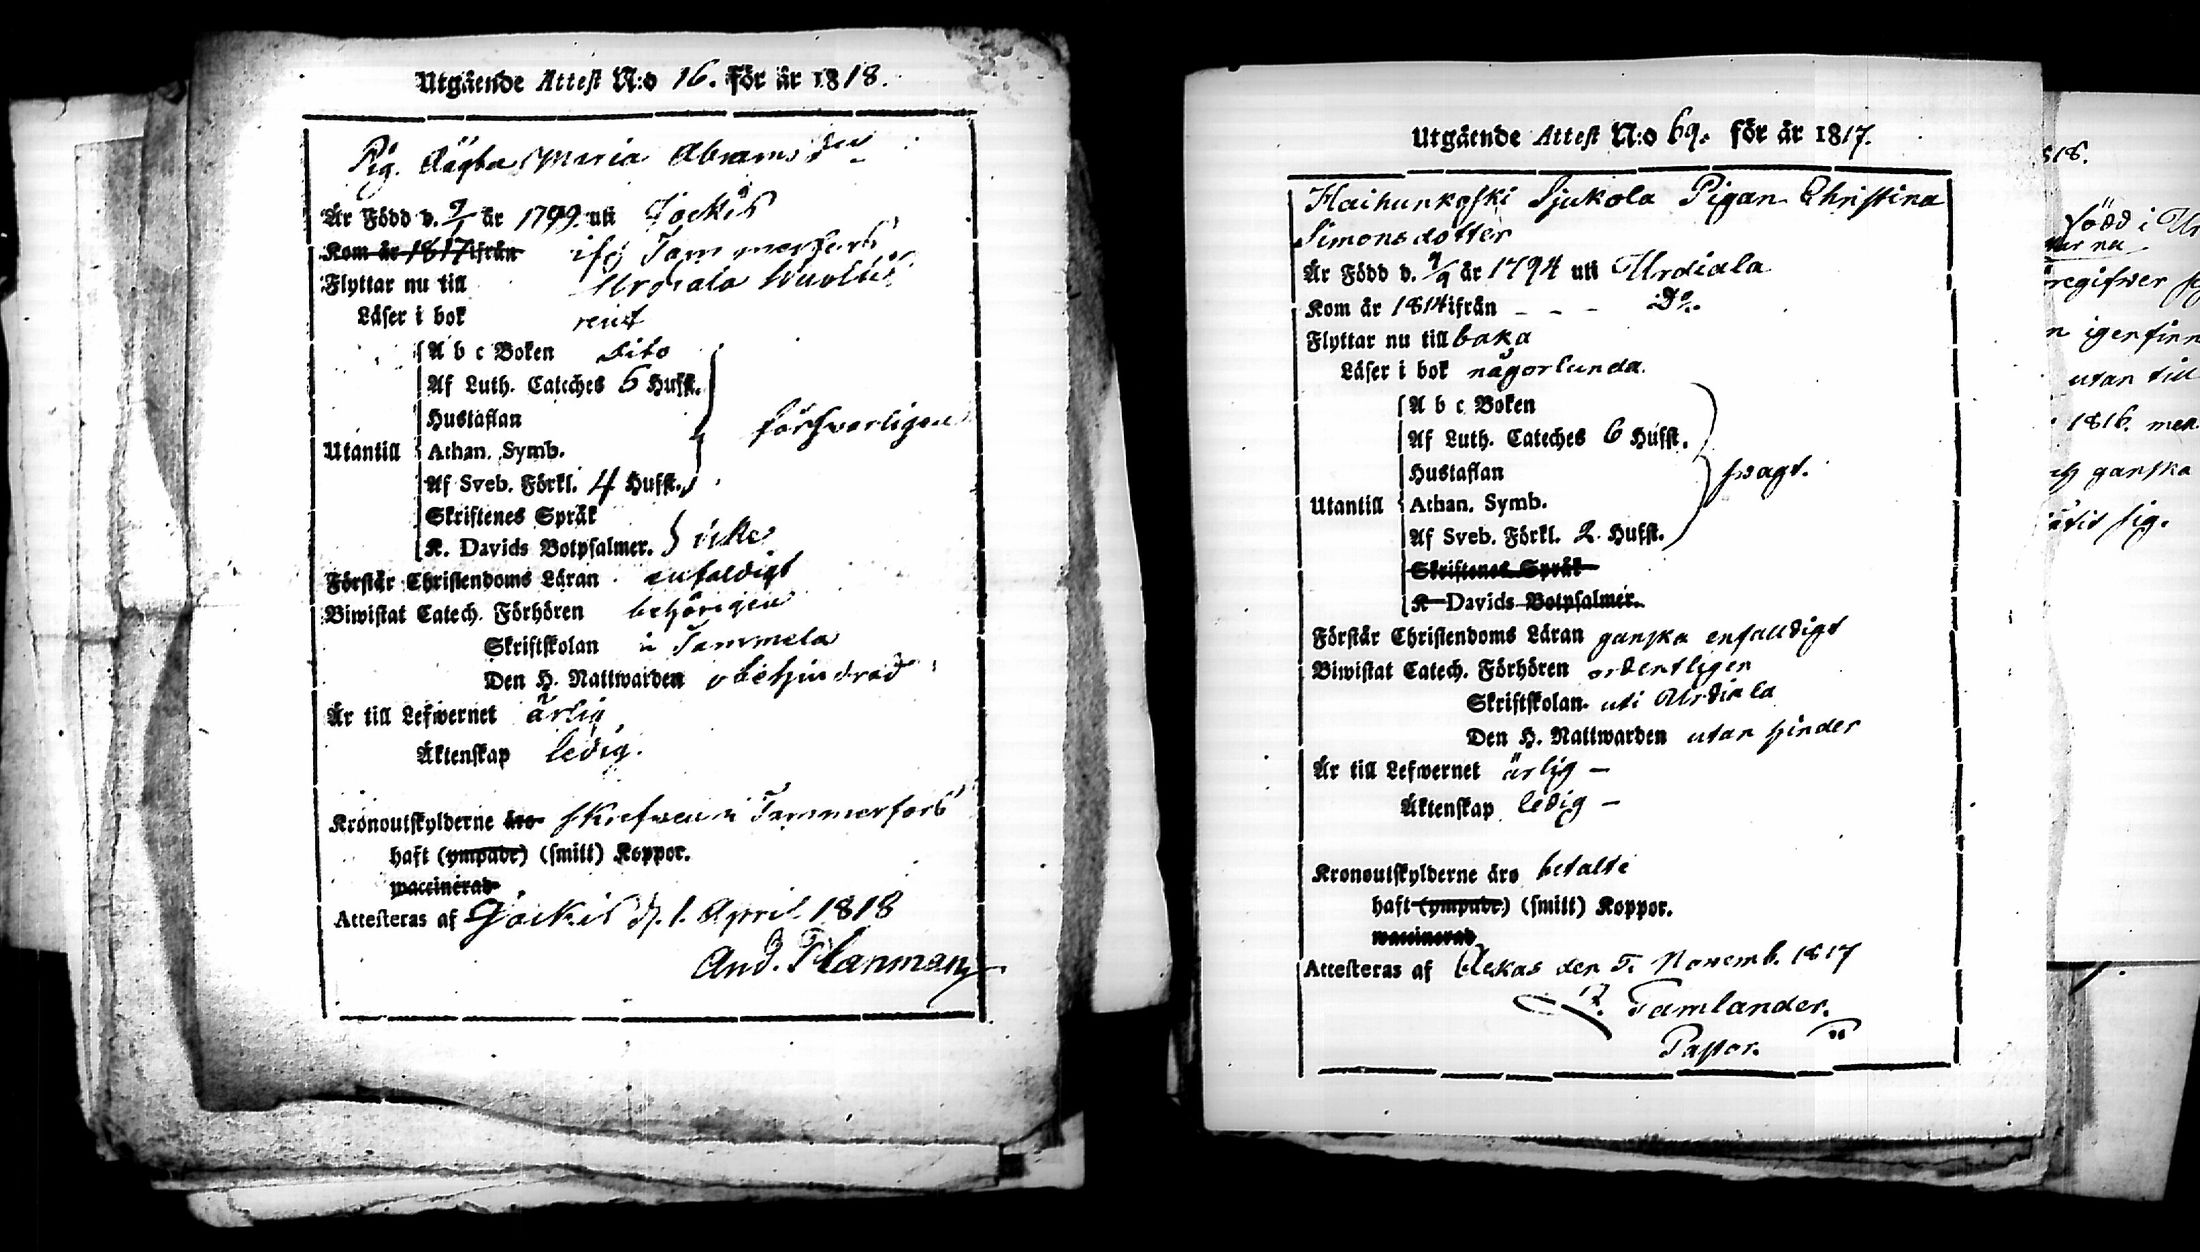 Utgående Attest N:o 16. för år 1818.
Pig. Maria Abrams
Är Född d. år 1799. uti Jockis
Kom år 1817 ifrån
Tammerfors
Flyttar nu till Urdiala
Läser i bok rent
A b c Boken dito
Af Luth. Cateches 6 Hufst.
Hustaflan försvarligen
Utantill Athan. Symb.
Af Sveb. Förkl. 4 Hufst.
Skriftenes Språk
K. Davids Botpsalmer. icke
Förstår Christendoms Läran enfaldigt
Biwistat Catech. Förhören behörigen
Skriftskolan i Tammela
Den H. Nattwarden obehindrad
Är till Lefwernet ärlig
Äktenskap ledig.
Kronoutskylderne äro skrefven i Tammerfors
haft (ympade) (smitt) Koppor.
waccinerad
Attesteras af Jockis d. 1. April 1818
And. Planman
Utgående Attest N:o 69. för år 1817.
Haihunkoski Sjukola Pigan Christina
Simonsdotter
Är Född d. 9/9 år 1794 uti Urdiala
Kom år 1814 ifrån - - - Do.
Flyttar nu till baka
Läser i bok någorlunda.
A b c Boken
Af Luth. Cateches 6 Hufst.
Hustaflan svagt.
Utantill Athan. Symb.
Af Sveb. Förkl. 2. Hufst.
Skriftenes Språk
K Davids Botpsalmer.
Förstår Christendoms Läran ganska enfalldigt
Biwistat Catech. Förhören ordentligen
Skriftskolan uti Urdiala
Den H. Nattwarden utan hinder
Är till Lefwernet ärlig -
Äktenskap ledig -
Kronoutskylderne äro betalte
haft (ympade) (smitt) Koppor.
waccinerad
Attesteras af Akkas den Novemb. 1817
Tamlander.
Pastor.
818.
född i
igenfinn
utan till
1816. men
ganska
sig.